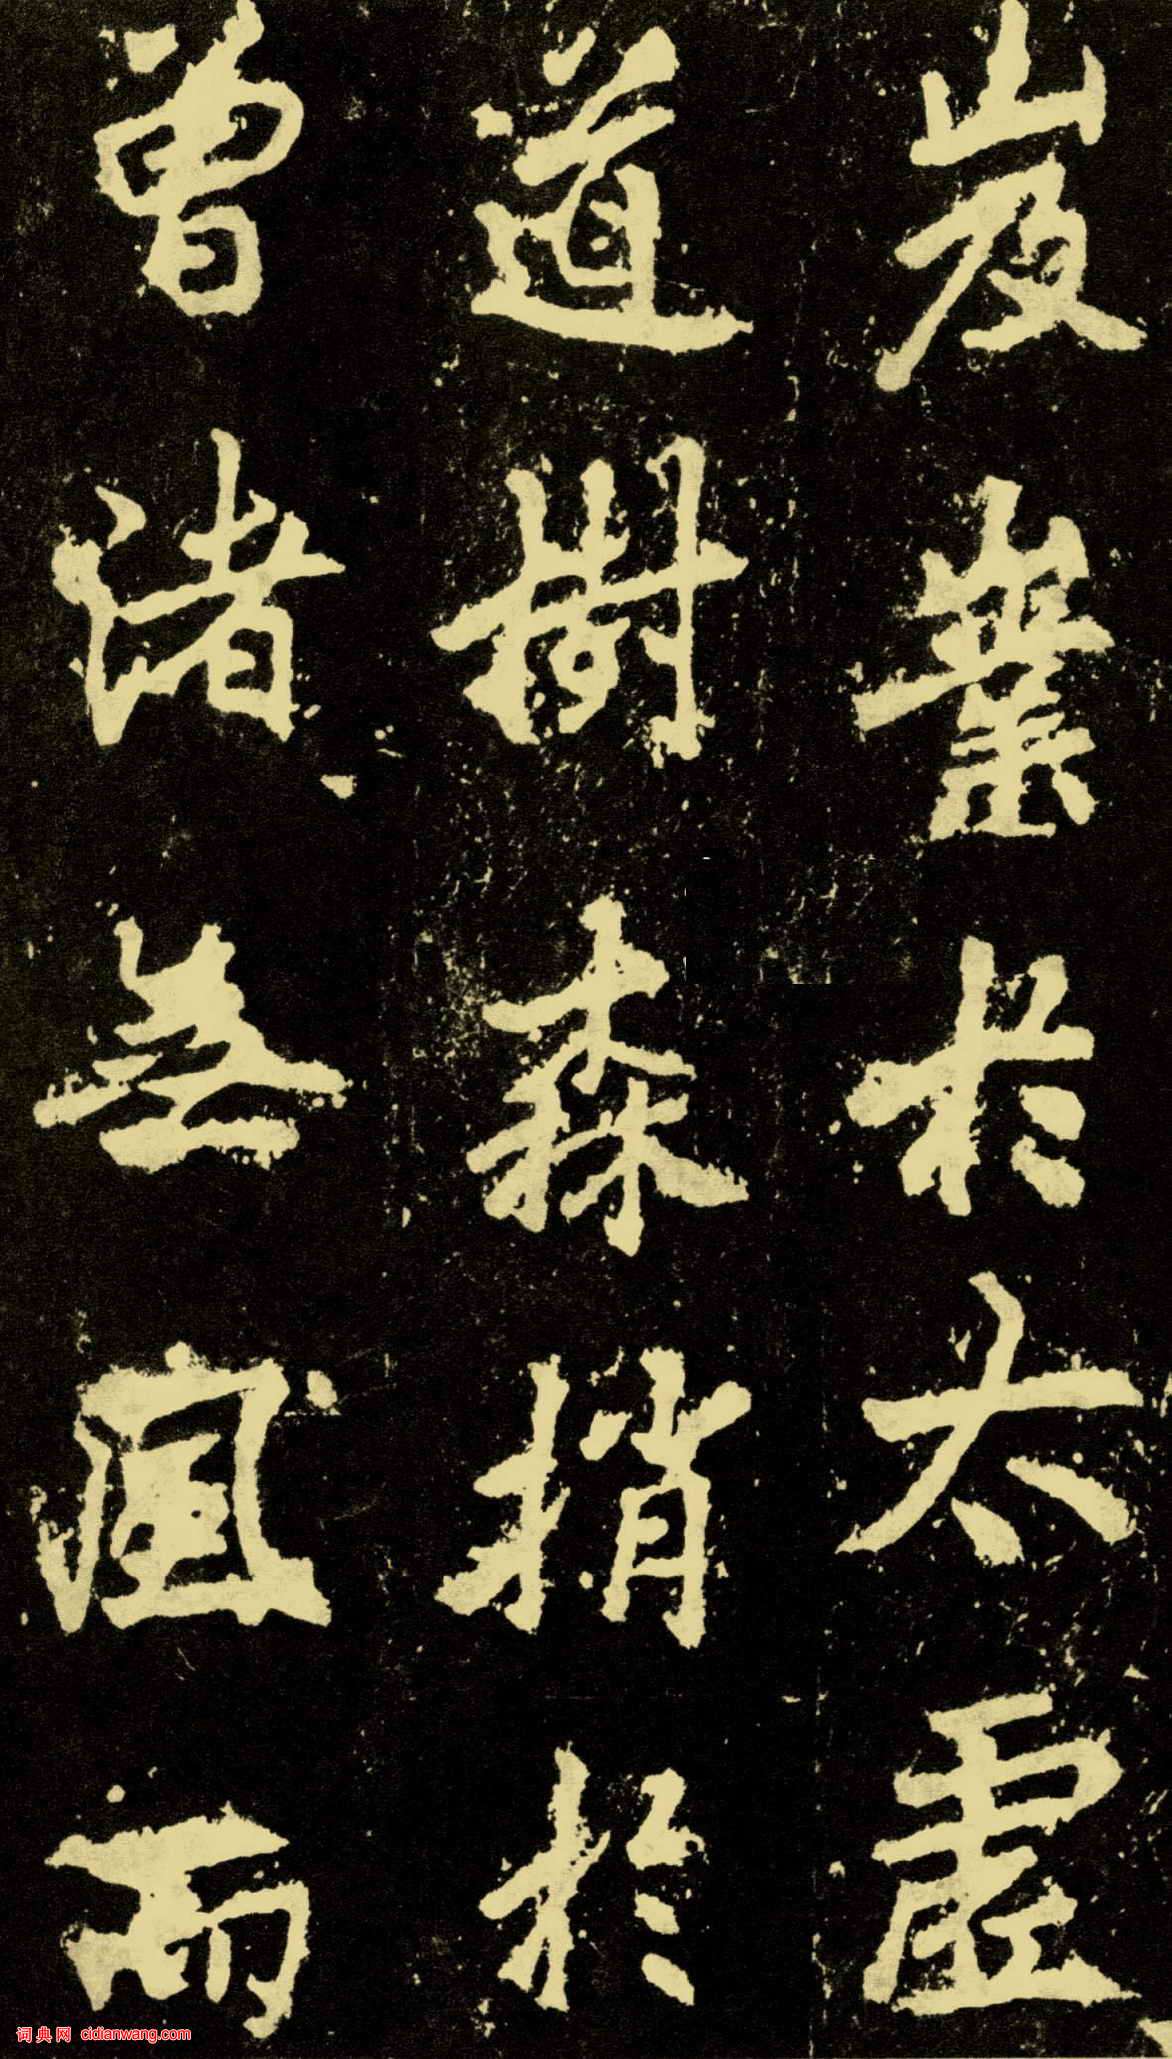 岌嶪於太虛
道樹森梢於
曾渚無風而
词典网 cidianwang.com